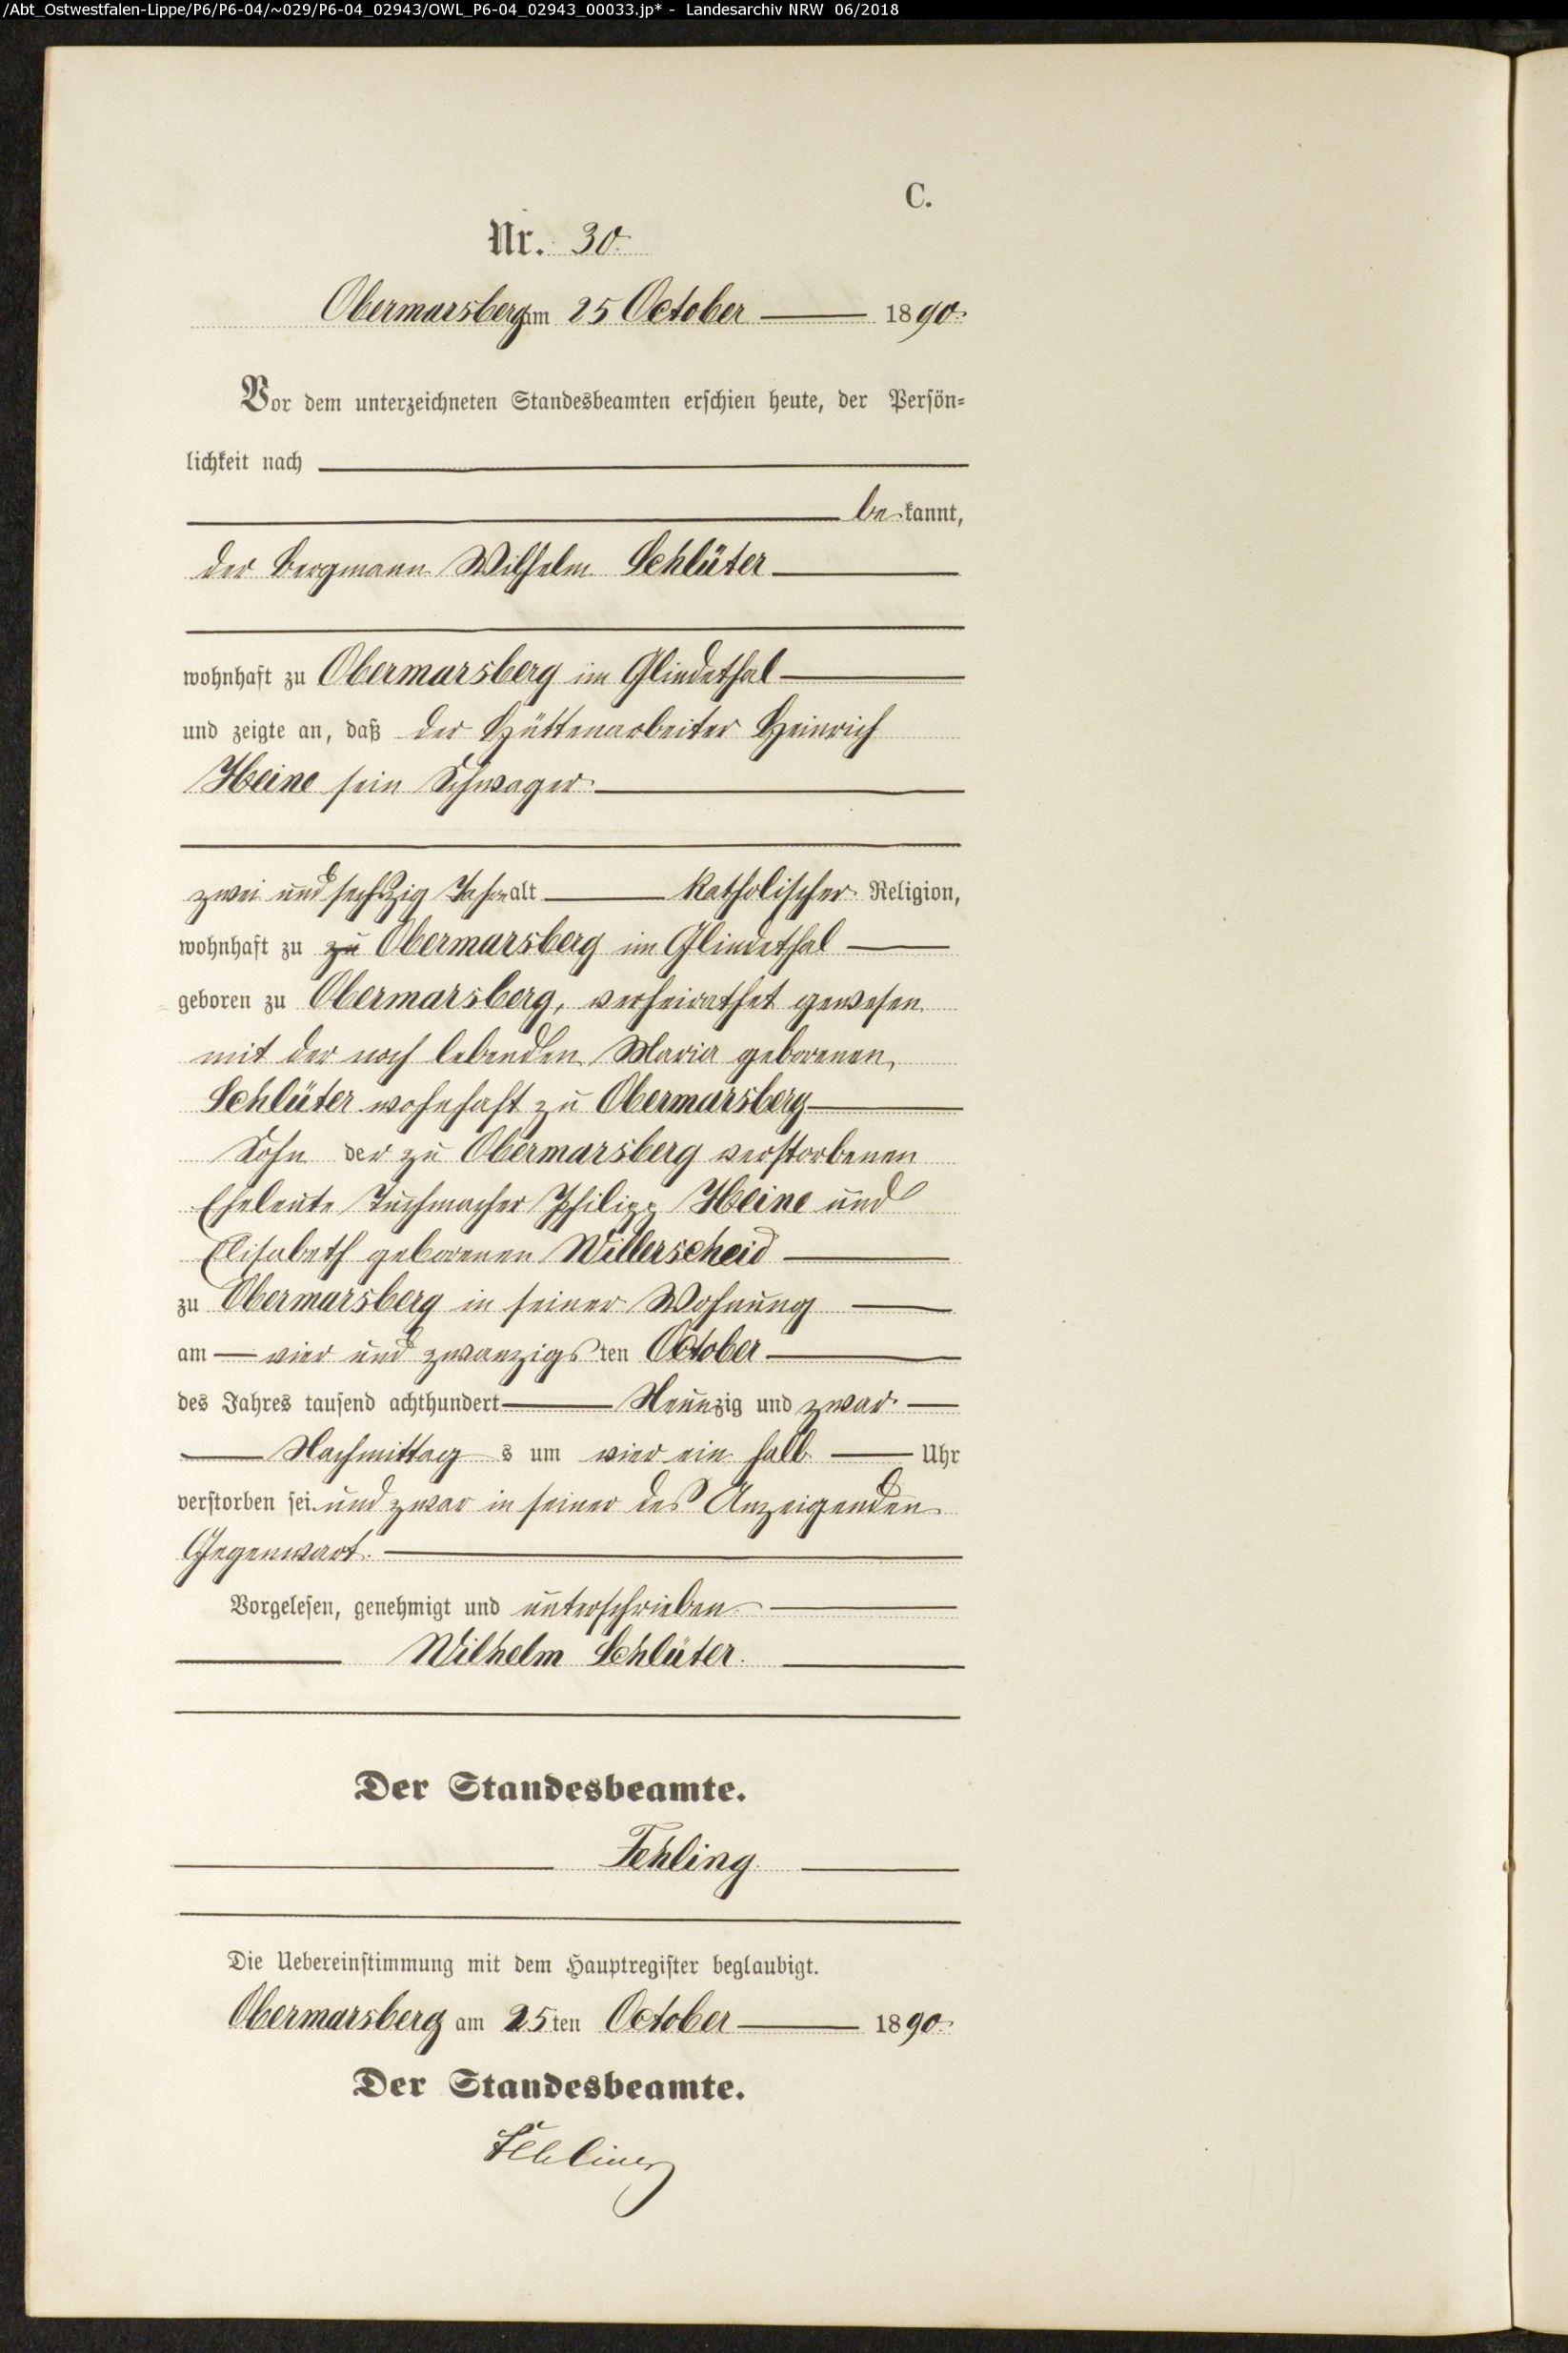 /Abt_Ostwestfalen-Lippe/P6/P6-04/~029/P6-04_02943/OWL_P6-04_02943_00033.jp* - Landesarchiv NRW 06/2018
C.
Nr. 30.
Obermarsberg am 25 October 1890.
Vor dem unterzeichneten Standesbeamten erschien heute, der Persön-
lichkeit nach
bekannt,
der Bergmann Wilhelm Schlüter
wohnhaft zu Obermarsberg im Glindethal
und zeigte an, daß der Hüttenarbeiter Heinrich
Heine sein Schwager
zwei und sechszig Jahre alt katholischer Religion,
wohnhaft zu zu Obermarsberg im Glindethal
geboren zu Obermarsberg, verheirathet gewesen
mit der noch lebenden Maria geborenen,
Schlüter wohnhaft zu Obermarsberg
Sohn der zu Obermarsberg verstorbenen
Eheleute Tuchmacher Philipp Heine und
Elisabeth geborenen Willerscheid
zu Obermarsberg in seiner Wohnung
am vier und zwanzigsten October
des Jahres tausend achthundert Neunzig und zwar
Nachmittags um vier ein halb Uhr
verstorben sei und zwar in seiner des Anzeigenden
Gegenwart.
Vorgelesen, genehmigt und unterschrieben
Wilhelm Schlüter.
Der Standesbeamte.
Fehling.
Die Uebereinstimmung mit dem Hauptregister beglaubigt.
Obermarsberg am 25ten October 1890.
Der Standesbeamte.
Fehling